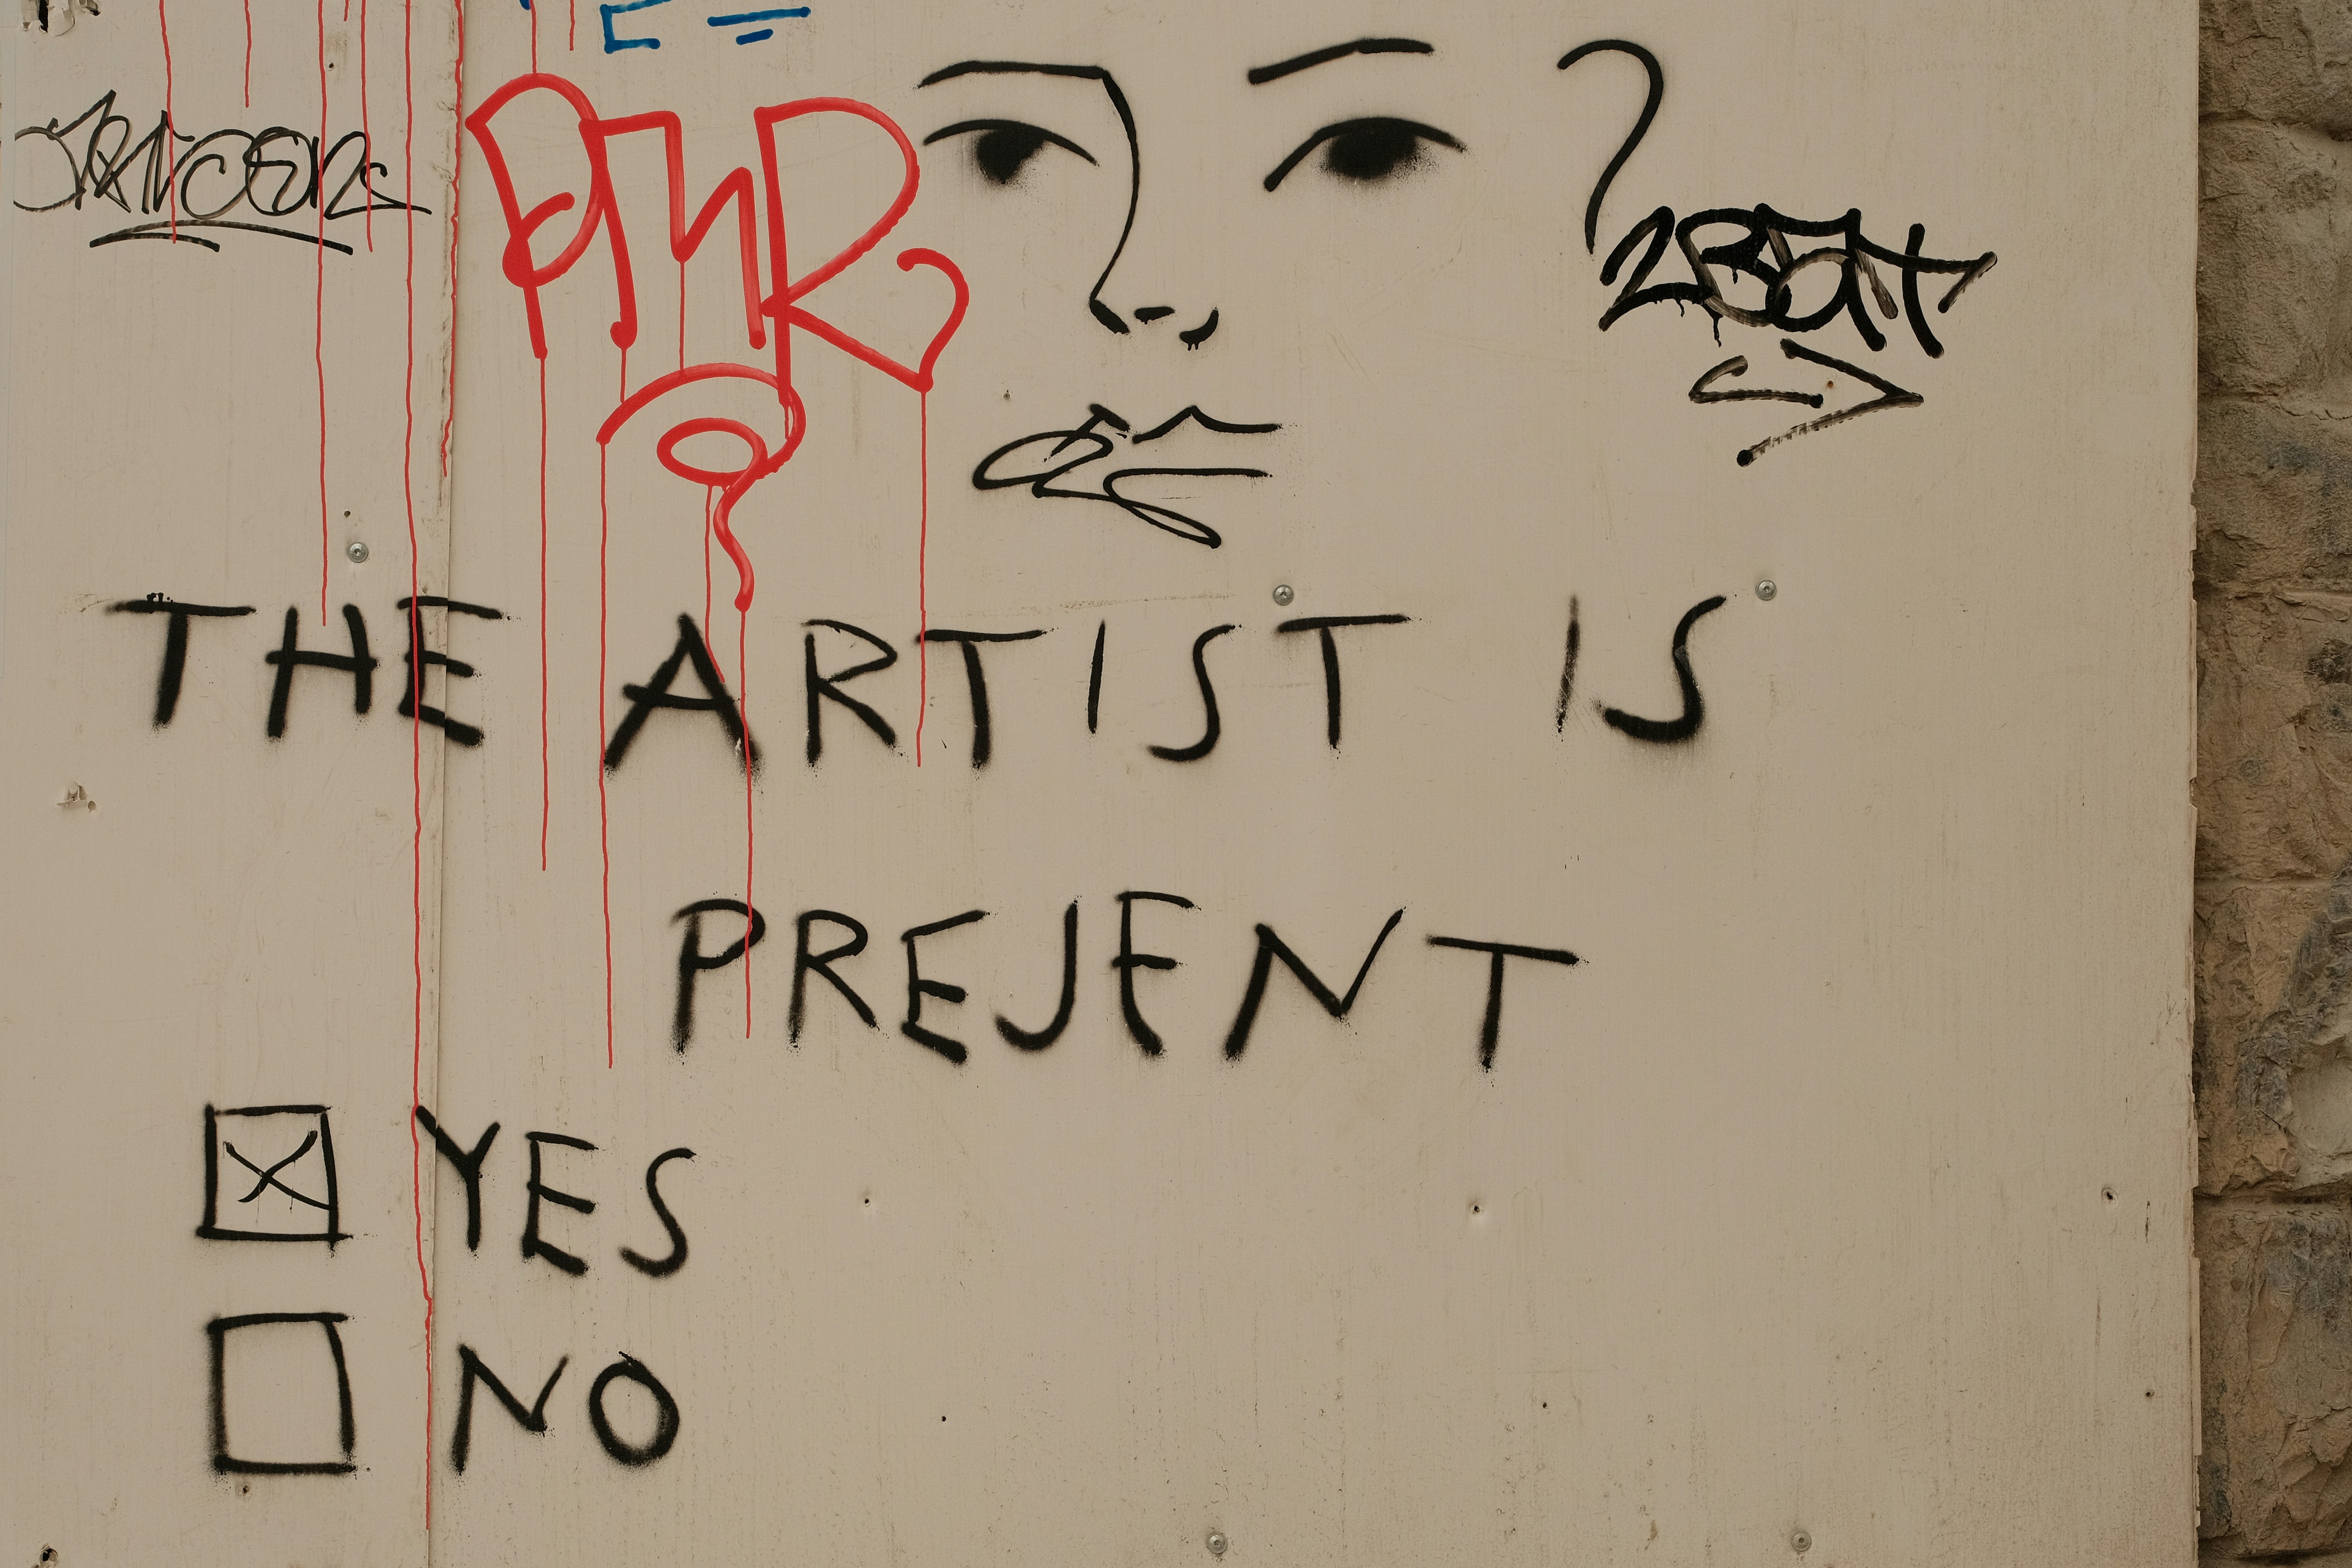 THE ARTIST IS
PREJENT
YES
NO